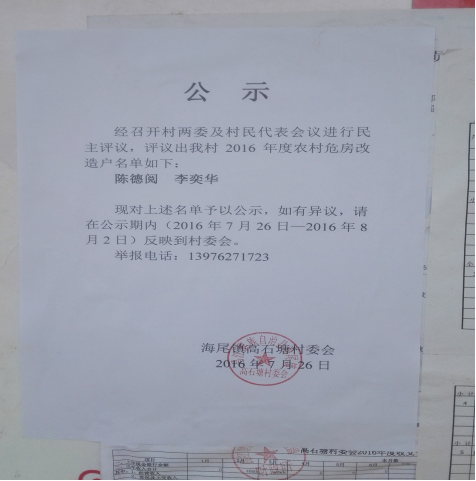 公 示
经召开村两委及村民代表会议进行民
主评议，评议出我村 2016 年度农村危房改
造户名单如下：
陈德阅 李奕华
现对上述名单予以公示，如有异议，请
在公示期内（2016 年 7 月 26 日—2016 年 8
月 2 日）反映到村委会。
举报电话：13976271723
海尾镇高石塘村委会
2016 年 7 月 26 日
高石塘村委会
高石塘村委会2016年度收支